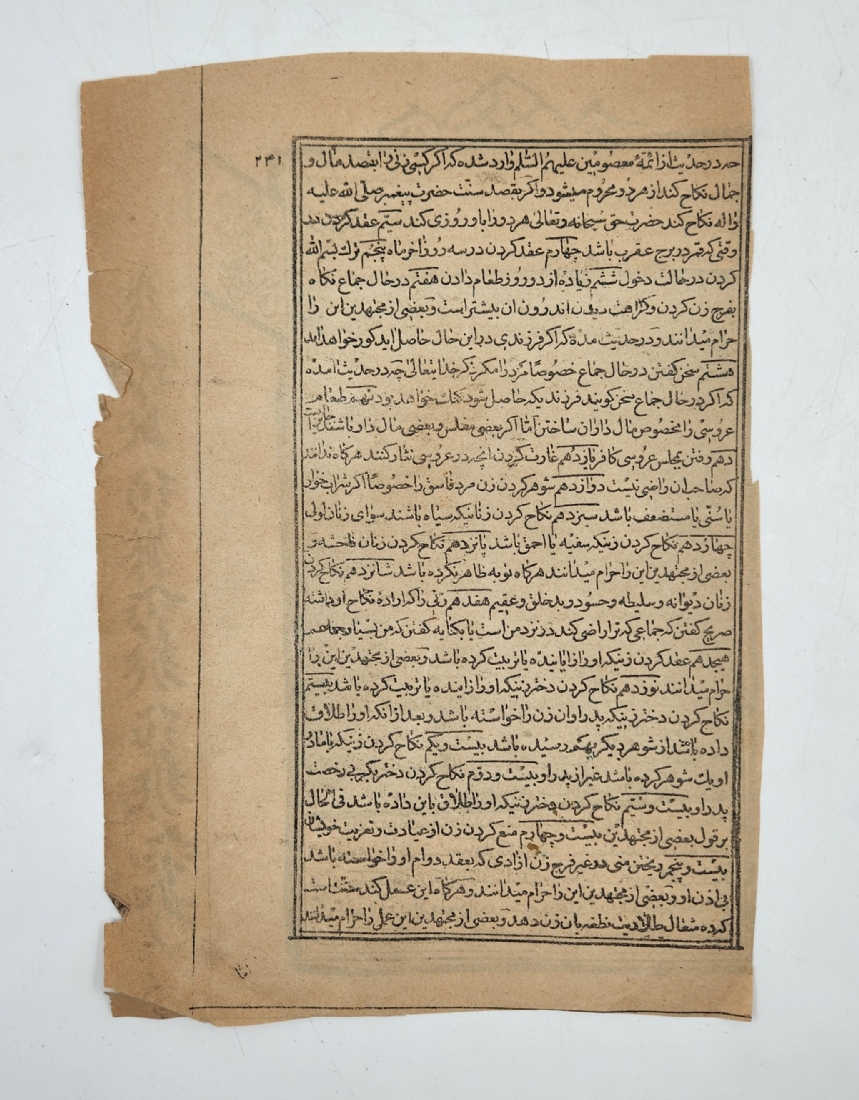 ۲۴۱
چه در حدیث از ائمهٔ معصومین علیهم السلم وارد شده که اکر کسی زنی را بقصد مال و
جمال نکاح کند از هر دو محروم میشود و اکر بقصد سنت حضرت پیغمبر صلی الله علیه
واله نکاح کند حضرت حق سبحانه و تعالی هر دو را باو روزی کند سیّم عقد کردن در
وقتی که قمر در برج عقرب باشد چهارم عقد کردن در سه روز اخر ماه پنجم ترك بسم الله
کردن در حالت دخول ششم زیاده از دو روز طعام دادن هفتم در حال جماع نکاه
بفرج زن کردن و کراهت دیدن اندرون ان بیشتر است و بعضی از مجتهدین این را
حرام میدانند و در حدیث امده که اکر فرزندی در این حال حاصل اید کور خواهد امد
هشتم سخن کفتن در حال جماع خصوصا مرد را مکر بذکر خدایتعالی چه در حدیث امده
که اکر در حال جماع سخن کویند فرزندیکه حاصل شود کنك خواهد بود نهم طعام
عروسی را مخصوص مال داران ساختن اما اکر بعضی مفلس و بعضی مال دار باشند جایز است
دهم رفتن بمجلس عروسی کافر یازدهم غارت کردن انچه در عروسی نثار کنند هرکاه ندانند
که صاحب ان راضی نیست دوازدهم شوهر کردن زن مرد فاسق را خصوصا اکر شرابخوار
یا سنّی یا مستضعف باشد سیزدهم نکاح کردن زنانیکه سیاه باشند سوای زنان
چهاردهم نکاح کردن زنیکه سفیه یا احمق باشد پانزدهم نکاح کردن زنان فاحشه و
بعضی از مجتهدین این را حرام میدانند هرکاه توبه ظاهر نکرده باشد شانزدهم نکاح کردن
زنان دیوانه و سلیطه و حسود و بد خلق و عقیم هفدهم زنی را که ارادهٔ نکاح او داشته
صریح کفتن که جماعی که ترا راضی کند در نزد من است یا بکنایه کفتن که من بسیار
هیجدهم عقد کردن زنیکه او را زاییده یا تربیت کرده باشد و بعضی از مجتهدین این را
حرام میدانند نوزدهم نکاح کردن دختر زنیکه او را زاینده یا تربیت کرده باشد بیستم
نکاح کردن دختر زنیکه پدر او ان زن را خواسته باشد و بعد از انکه او را طلاق
داده باشد از شوهر دیکر بهم رسیده باشد بیست و یکم نکاح کردن زنیکه با مادر
او یك شوهر کرده باشد غیر از پدر او بیست و دوم نکاح کردن دختر بکر بی رخصت
پدر او بیست و سیّم نکاح کردن دختر زنیکه او را طلاق باین داده باشد فی الحال
بر قول بعضی از مجتهدین بیست و چهارم منع کردن زن از عیادت و تعزیت خویشان
بیست و پنجم ریختن منی در غیر فرج زن ازادی که بعقد دوام او را خواسته باشد
بی اذن او و بعضی از مجتهدین این را حرام میدانند و هرکاه این عمل کند سنت است
که ده مثقال طلا دیت نطفه بان زن دهد و بعضی از مجتهدین این عمل را حرام میدانند
اما